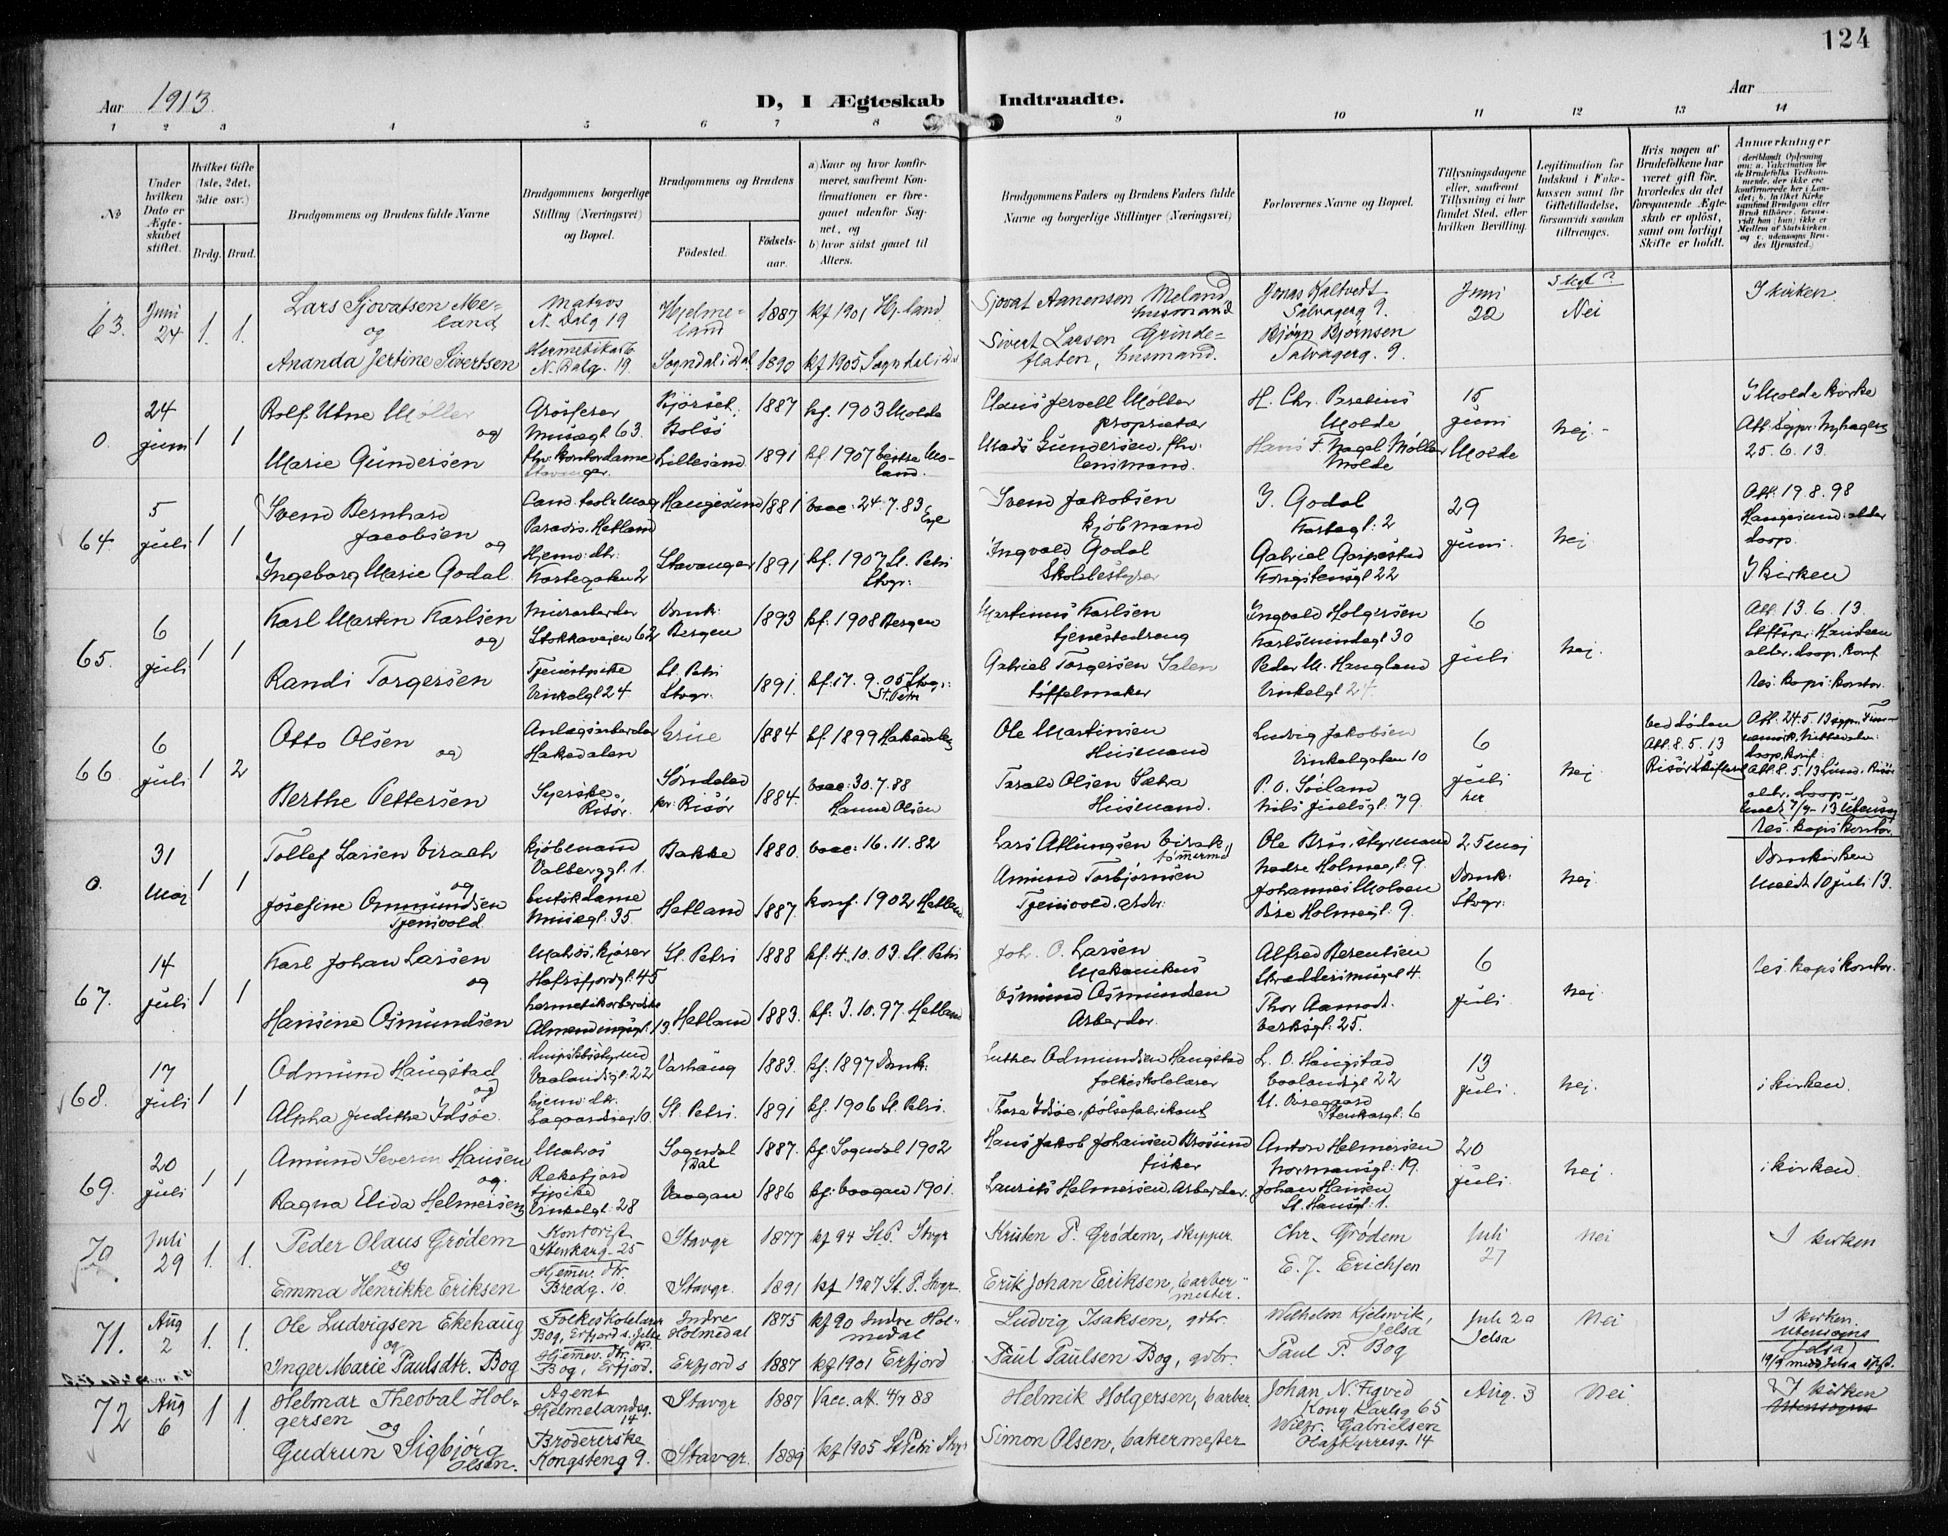 124
Aar 1913.
D, I Ægteskab Indtraadte.
Aar
1 2 3 4 5 6 7 8 9 10 11 12 13 14
No
Under hvilken Dato er Ægteskabet stiftet.
Hvilket Gifte (1ste, 2det, 3die osv.)
Brdg. Brud.
Brudgommens og Brudens fulde Navne
Brudgommens borgerlige Stilling (Næringsvei) og Bopæl.
Brudgommens og Brudens
Fødested. Fødsels-aar.
a) Naar og hvor konfirmeret, saafremt Konfirmationen er foregaaet udenfor Sognet, og
b) hvor sidst gaaet til Alters.
Brudgommens Faders og Brudens Faders fulde Navne og borgerlige Stillinger (Næringsvei)
Forlovernes Navne og Bopæl.
Tillysningsdagene eller, saafremt Tillysning ei har fundet Sted, efter hvilken Bevilling.
Legitimation for Indskud i Enkekassen samt for Giftetilladelse, forsaavidt saadan tiltrænges.
Hvis nogen af Brudefolkene har været gift før, hvorledes da det foregaaende Ægteskab er opløst, samt om lovligt Skifte er holdt.
Anmærkninger
63. Juni 24 1. 1.
Lars Sjovatsen Meland
og
Ananda Jertine Sivertsen
Matros
N. Dalg 19
N. Dalg. 19.
Hjelmeland 1887 kf 1901 Hj.land
Sogndal i Dal 1890 kf 1905 Sogndal i Dal
Sjovat Aanensen Meland husmand
Sivert Larsen Grindeflaten, husmand.
Jonas Haltvedt
Salvagerg 9.
Bjørn Bjørnsen
Salvagerg. 9.
Juni 22
Slegt?
Nei
I kirken
0. 24 juni 1 1
Rolf Utne Møller
og
Marie Gundersen
Grosserer
Musægt 63.
fhv. kontordame
Stavanger.
Bolsø 1887 kf. 1903 Molde
Lillesand 1891 kf. 1907 Vestre Moland.
Claus Jervell Møller
proprietær
Mads Gundersen, fhv. lensmand.
H. Chr.
Molde
Hans F. Nagel Møller
Molde
15 juni Molde
Nej.
I Molde kirke
25.6.13.
64. 5 juli 1 1
Svend Bernhard Jacobsen
og
Ingeborg Marie Godal
Paradis. Hetland
Hjemv. dtr.
Haugesund 1881 vacc. 24.7.83
Stavanger 1891 kf. 1907 St. Petri Stvgr.
Svend Jakobsen
kjøbmand
Ingvald Godal
Skolebestyrer
I. Godal
Gabriel Gaspestad
Kongstensgt 22
29 juni.
Nej
Att. 19.8.98
Haugesund
I kirken
65. 6 juli 1 1
Karl Martin Karlsen
og
Randi Torgersen
Murarbeider
Stokkaveien 62
Tjenestpike
Vinkelgt 24
Domk. Bergen 1893 kf. 1908 Bergen
St. Petri Stvgr. 1891. kf. 17.9.05 Stvgr. St. Petri
Martinus Karlsen
tjenestedreng
Gabriel Torgersen Salen
tøffelmaker
Ingvald Holgersen
Karlsmindegt 30
Peder M. Haugland
Vinkelgt 24.
6 juli
Nej.
Att. 13.6.13.
Res. kap. kontor.
66. 6 juli 1 2
Otto Olsen
og
Berthe Pettersen
Anlægsarbeider
Hakedalen
Syerske
Risør.
Grue 1884 kf. 1899 Hakedalen
Søndeled pr. Risør 1884. vacc. 30.7.88
Hanne Olsen
Ole Martinsen
Husmand
Tarald Olsen Sætra
Husmand.
Ludvig Jakobsen
Vinkelgaten 10
P. O. Søiland
Nils Juelsgt. 79
6 juli her
Nej
Ved døden
Att. 8.5.13
Risør Skifteret
Res. kaps kontor
0. 31 Maj 1 1
Tollef Larsen Virak
og
Josefine Osmundsen Tjensvold
kjøbmand
Valberggt. 1.
butikdame
Musegt. 35.
Bakke 1880. vacc. 16.11.82
Hetland 1887. konf. 1902 Hetland
Lars Atlungsen Virak,
tømmermd
Amund Torbjørnsen
Tjensvold, arbdr.
Ole Brus, styrmand
Nedre Holmegt. 9.
Johannes Molven
Øvre Holmegt. 9.
25 maj Domk. Stvgr.
Nej.
Domkirken
Meldt 10 juli 13.
67. 14 juli 1 1
Karl Johan Larsen
og
Hansine Osmundsen
Hafrsfjordgt. 45
hermetikarbeiderske
Almendingsgt. 13
St. Petri 1888 kf. 4.10.03. St. Petri
Hetland 1883. kf. 3.10.97. Hetland
Joh. O. Larsen
Mekanikus
Osmund Osmundsen
Arbeider.
Alfred Berentsen
Thor Aamodt.
Verksgt. 25.
6 juli
Nej.
Res. kaps kontor.
68. 17 juli 1 1
Odmund Haugstad
og
Alpha Judithe Idsøe.
Vaalandsgt. 22
hjemv. dtr.
Lagaardsvei 10.
Varhaug 1883. kf. 1897 Domk.
St. Petri. 1891 kf. 1906 St. Petri.
Luther Odmundsen Haugstad
folkeskolelærer
Thore Idsøe, pølsefabrikant
L. O. Haugstad
Vaalandsgt 22
Stenkargt. 6
13 juli.
Nej.
i kirken.
69. 20 juli 1 1
Amund Severin Hansen
og.
Ragna Elida Helmersen
Matros
Rekefjord
tj.pike
Vinkelgt. 28
Sogndal Dal 1887. kf. Sogndal 1902
Vaagan 1886 kf. Vaagan 1901.
Hans Jakob Johansen Brosund
fisker
Laurits Helmersen. Arbeider.
Anton Helmersen
Normansgt. 19.
Johan Hansen
St. Hansgt. 1.
20 juli.
Nej.
i kirken.
70 Juli 29 1. 1.
Peder Olaus Grødem
og
Emma Henrikke Eriksen
Kontorist
Stenkarg. 25
Hjemv. dtr.
Bredg. 10.
Stavgr 1877 kf 94 St P. Stvgr
Stavgr. 1891 kf 1907 St. P. Stvgr
Kristen P. Grødem, skipper
Erik Johan Eriksen, barbermester.
Chr. Grødem
E. J. Erichsen
Juli 27
Nei
I kirken
71. Aug 2 1. 1.
Ole Ludvigsen Ekehaug
og
Inger Marie Paulsdtr. Bog
Folkeskolelærer
Bog, Erfjord s. Jelsa
Hjemmev. dtr.
Bog, Erfjord.
Indre Holmedal 1875 kf 90 Indre Holmedal
Erfjord s 1887 kf 1901 Erfjord
Ludvig Isaksen, gdbr.
Paul Paulsen Bog, gdbr.
Wilhelm Kjelsvik,
Jelsa
Paul P. Bog
Juli 20 Jelsa
Nei
I kirken.
Utensogns
Jelsa
72 Aug 6 1. 1.
Helmar Theobal Holgersen
og
Gudrun Sigbjørg Olsen.
Agent
Hjelmelandsg. 14
Brødererske
Kongsteng 9.
Stavgr 1887 Vacc. att. 4/7 88
Stavgr. 1889 kf 1905 St Petri Stvgr
Helmik Holgersen, barber
Simon Olsen, bakermester
Johan N. Figved
Kong Karlsg 65
Wilh. Gabrielsen
Olaf Kyrresg. 14
Aug. 3
Nei
I kirken
Utensogns